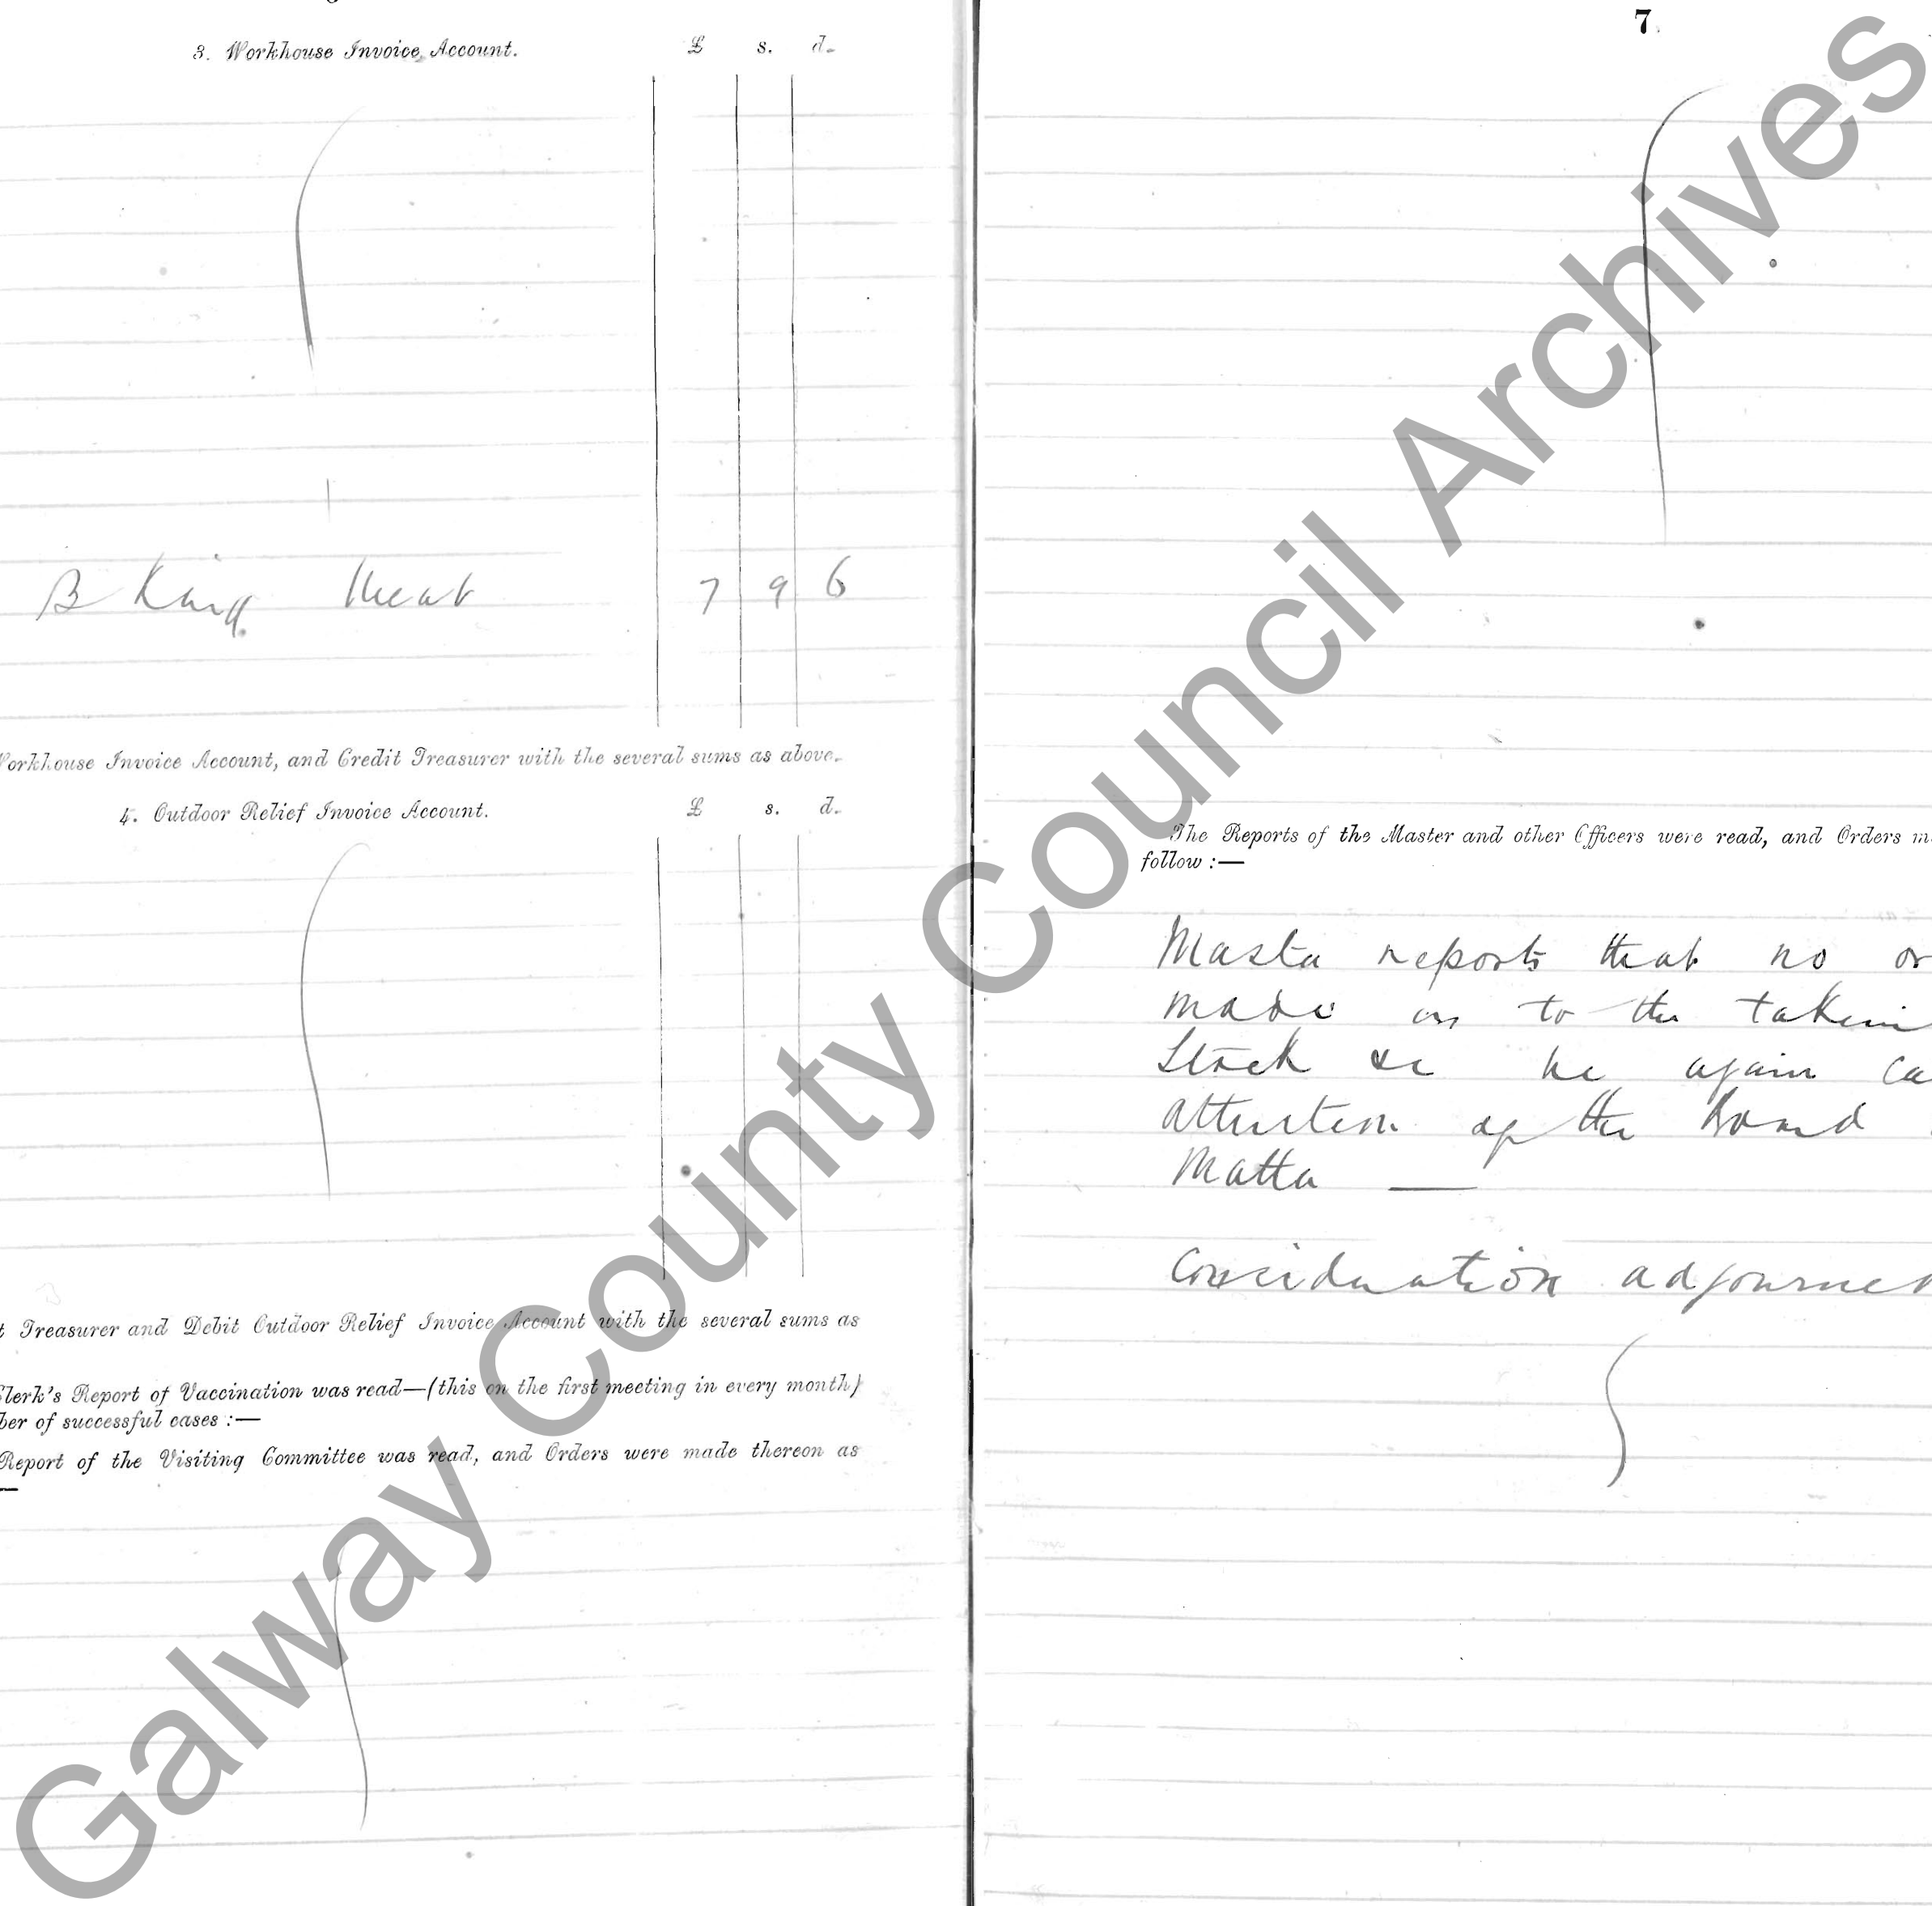 3. Workhouse Invoice Account. £ s. d.
B King Meat 7 9 6
Workhouse Invoice Account, and Credit Treasurer with the several sums as above.
4. Outdoor Relief Invoice Account. £ s. d.
t Treasurer and Debit Outdoor Relief Invoice Account with the several sums as
Clerk's Report of Vaccination was read—(this on the first meeting in every month)
ber of successful cases :—
Report of the Visiting Committee was read, and Orders were made thereon as
—
7.
The Reports of the Master and other Officers were read, and Orders m
follow :—
Master reports that no or
made as to the takin
Stock &c he again ca
attention of the Board
Matter —
Consideration adjourned
Galway County Council Archives